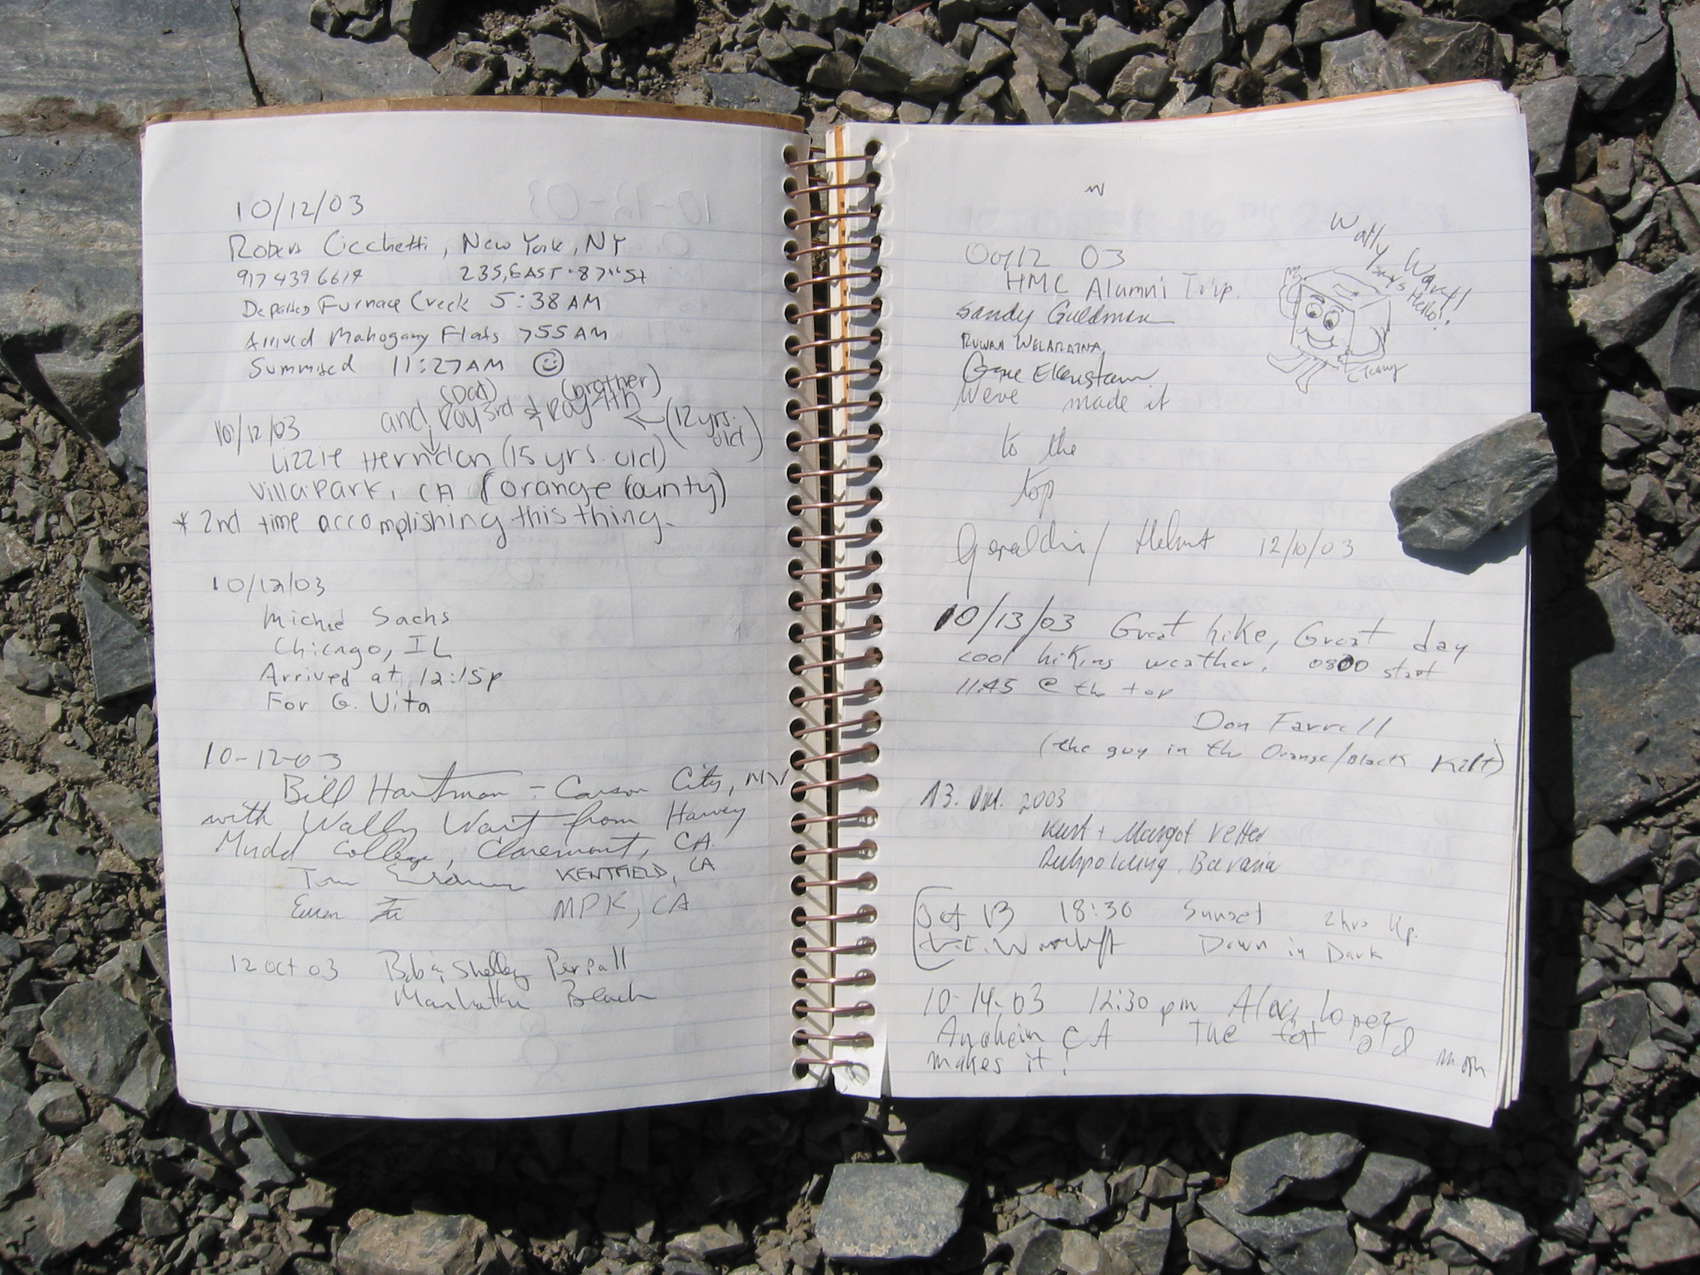 10/12/03
Robert Cicchetti, New York, NY
917 439 6614 235, EAST 87th St
Departed Furnace Creek 5:38 AM
Arrived Mahogany Flats 755 AM
Summited 11:27 AM
(Dad) (brother)
and Roy 3rd & Roy 4th ← (12 yrs. old)
10/12/03
Lizzie Herndon (15 yrs. old)
Villa Park, CA (Orange County)
* 2nd time accomplishing this thing.
10/12/03
Sachs
Chicago, IL
Arrived at 12:15p
For G. Vita
10-12-03
Bill Hartman - Carson City, NV
with Wally Wart from Harvey
Mudd College, Claremont, CA.
Tom KENTFIELD, CA
MPK, CA
12 Oct 03 Bob & Shelley Perpall
Manhattan Beach
Oct 12 03
HMC Alumni Trip.
Sandy Guldman
RUWAN WELARATNA
Gene Ekenstam
Weve made it
to the
top
Wally Wart!
Says Hello!
Helmut 12/10/03
10/13/03 Great hike, Great day
cool hiking weather. 0800 start
11:45 @ the top
Don Farrell
(the guy in the Orange/Black Kilt)
13. Okt. 2003
Kurt + Margot Vetter
Ruhpolding, Bavaria
Oct 13 18:30 Sunset 2hrs Up.
Down in Dark
10-14-03 12:30 pm Alex Lopez
Anaheim CA The fat old man
makes it!